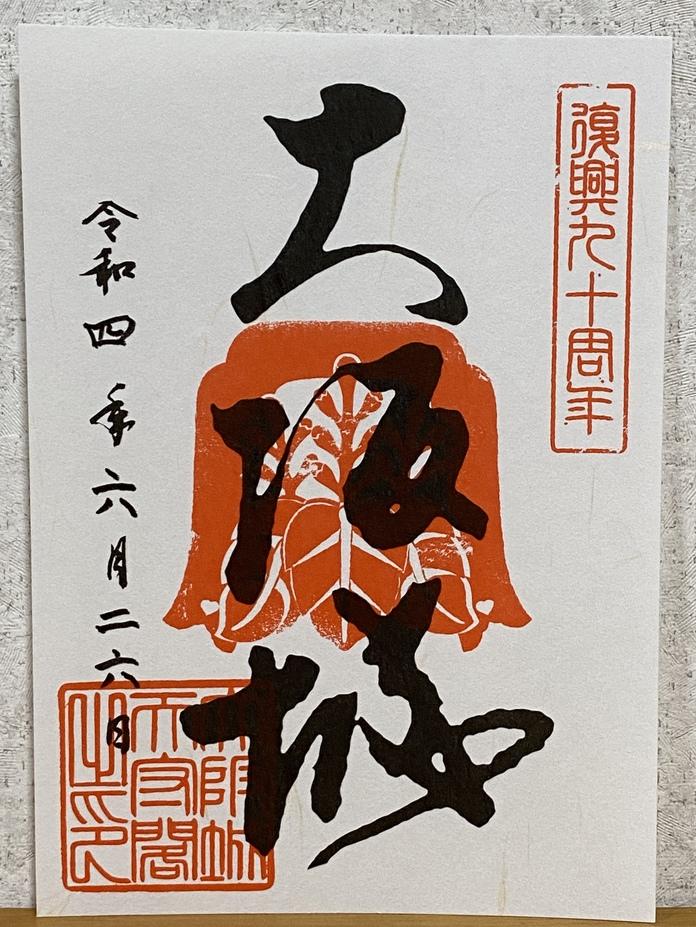 復興九十周年
大阪城
令和四年六月二六日
大阪城
天守閣
之印